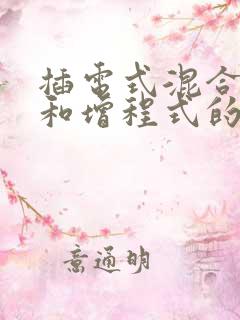 插电式混合
和增程式的
意通明